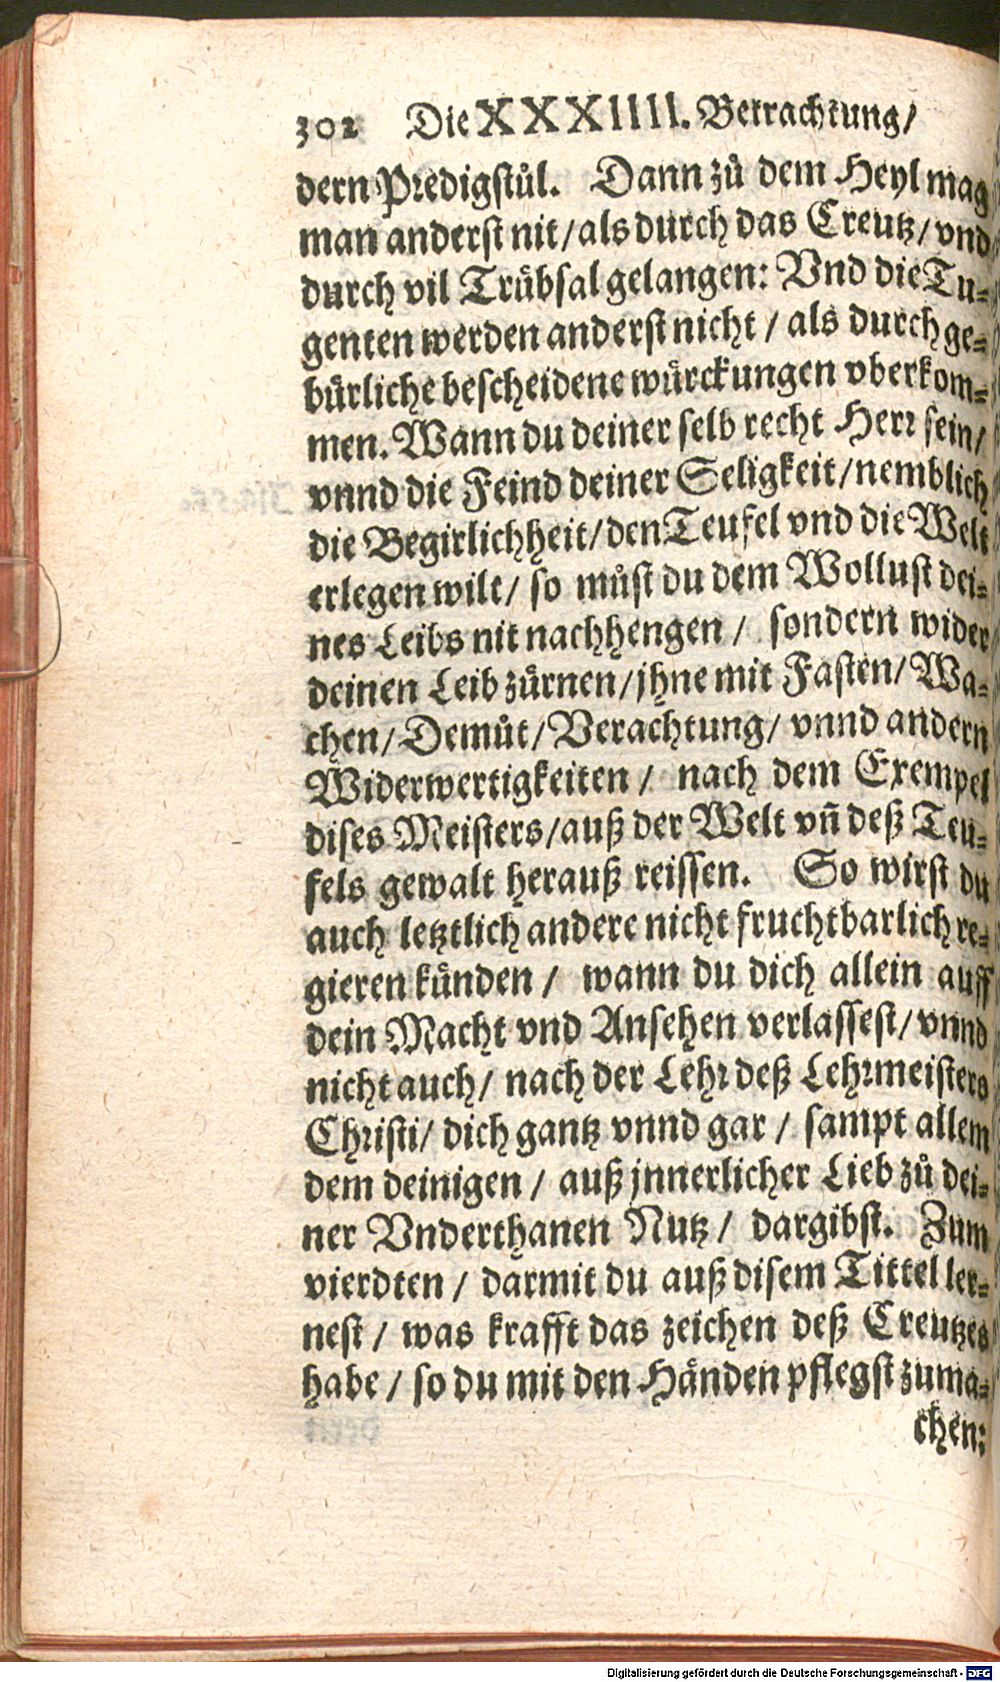 302 Die XXXIIII. Betrachtung/
dern Predigstůl. Dann zů dem Heyl mag
man anderst nit/als durch das Creutz/vnd
durch vil Trübsal gelangen: Vnd die Tu-
genten werden anderst nicht / als durch ge-
bürliche bescheidene würckungen vberkom-
men. Wann du deiner selb recht Herr sein/
vnnd die Feind deiner Seligkeit/nemblich
die Begirlichheit/den Teufel vnd die Welt
erlegen wilt/ so můst du dem Wollust dei-
nes Leibs nit nachhengen / sondern wider
deinen Leib zürnen/jhne mit Fasten/Wa-
chen/Demůt/Verachtung/ vnnd andern
Widerwertigkeiten / nach dem Exempel
dises Meisters/auß der Welt vñ deß Teu-
fels gewalt herauß reissen. So wirst du
auch letztlich andere nicht fruchtbarlich re-
gieren künden / wann du dich allein auff
dein Macht vnd Ansehen verlassest/vnnd
nicht auch/ nach der Lehr deß Lehrmeisters
Christi/ dich gantz vnnd gar / sampt allem
dem deinigen / auß jnnerlicher Lieb zů dei-
ner Vnderthanen Nutz / dargibst. Zum
vierdten / darmit du auß disem Tittel ler-
nest / was krafft das zeichen deß Creutzes
habe / so du mit den Händen pflegst zuma-
chen:
Digitalisierung gefördert durch die Deutsche Forschungsgemeinschaft - DFG